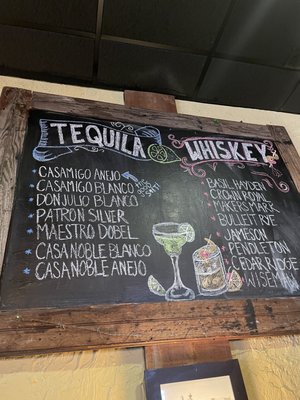 TEQUILA
CASAMIGO AÑEJO
CASAMIGO BLANCO
DON JULIO BLANCO
PATRÓN SILVER
MAESTRO DOBEL
CASA NOBLE BLANCO
CASA NOBLE ANEJO
WHISKEY
BASIL HAYDEN
CROWN ROYAL
MAKERS MARK
BULLET RYE
JAMESON
PENDLETON
CEDAR RIDGE